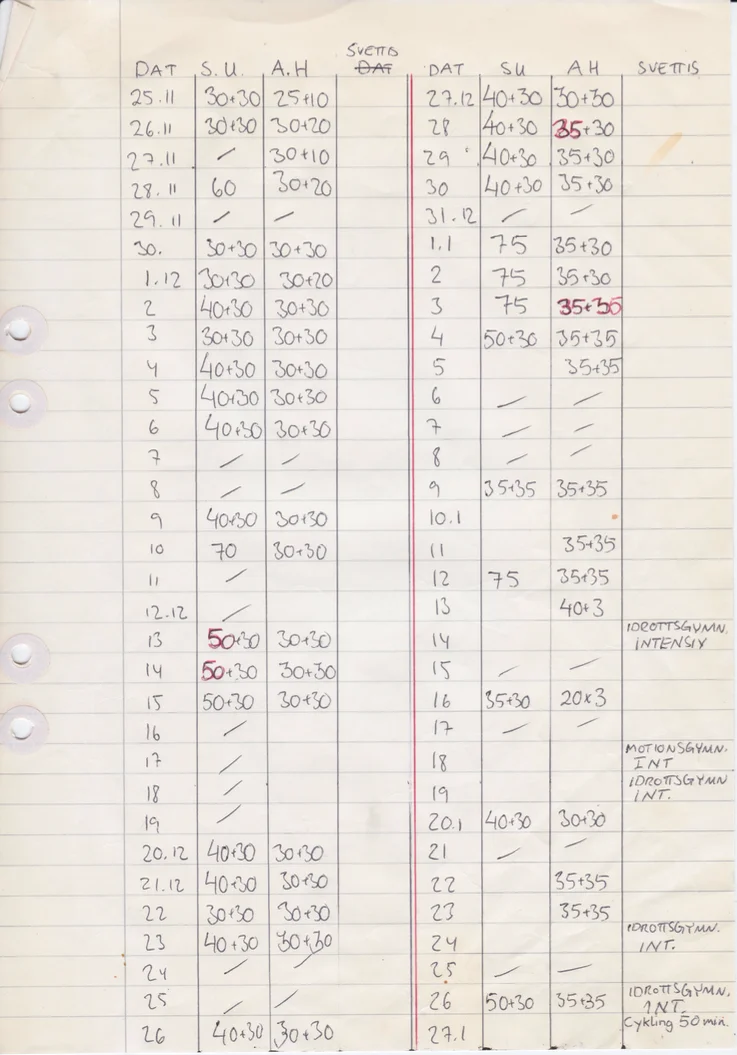 DAT S.U. A.H SVETTIS DAT DAT SU AH SVETTIS
25.11 30+30 25+10 27.12 40+30 30+30
26.11 30+30 30+20 28 40+30 35+30
27.11 / 30+10 29 40+30 35+30
28.11 60 30+20 30 40+30 35+30
29.11 / / 31.12 / /
30. 30+30 30+30 1.1 75 35+30
1.12 30+30 30+20 2 75 35+30
2 40+30 30+30 3 75 35+35
3 30+30 30+30 4 50+30 35+35
4 40+30 30+30 5 35+35
5 40+30 30+30 6 / /
6 40+30 30+30 7 / /
7 / / 8 / /
8 / / 9 35+35 35+35
9 40+30 30+30 10.1
10 70 30+30 11 35+35
11 / 12 75 35+35
12.12 / 13 40+3
13 50+30 30+30 14 IDROTTSGYMN. INTENSIV
14 50+30 30+30 15 / /
15 50+30 30+30 16 35+30 20x3
16 / 17 / /
17 / 18 MOTIONSGYMN. INT
18 / 19 IDROTTSGYMN INT.
19 / 20.1 40+30 30+30
20.12 40+30 30+30 21 / /
21.12 40+30 30+30 22 35+35
22 30+30 30+30 23 35+35
23 40+30 30+30 24 IDROTTSGYMN. INT.
24 / / 25 / /
25 / / 26 50+30 35+35 IDROTTSGYMN. INT.
26 40+30 30+30 27.1 Cykling 50 min.